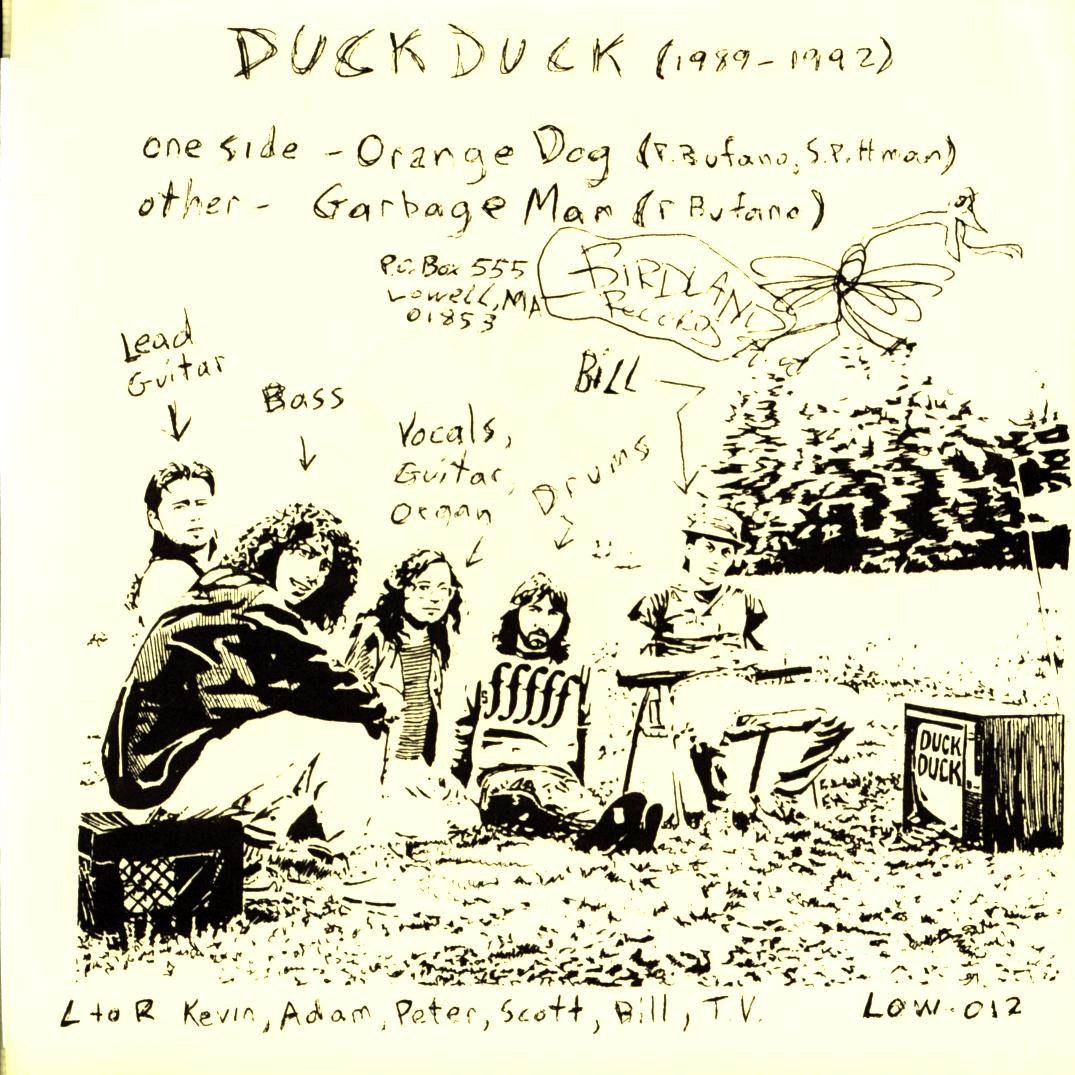 DUCK DUCK (1989-1992)
one side - Orange Dog (P. Bufano, S. Pittman)
other - Garbage Man (P Bufano)
P.O. Box 555
Lowell, MA
01853
BIRDLAND
RECORDS
Lead
Guitar
Bass
Vocals,
Guitar,
Organ
Drums
BILL
fffff
DUCK
DUCK
L to R Kevin, Adam, Peter, Scott, Bill, T.V.
LOW-012